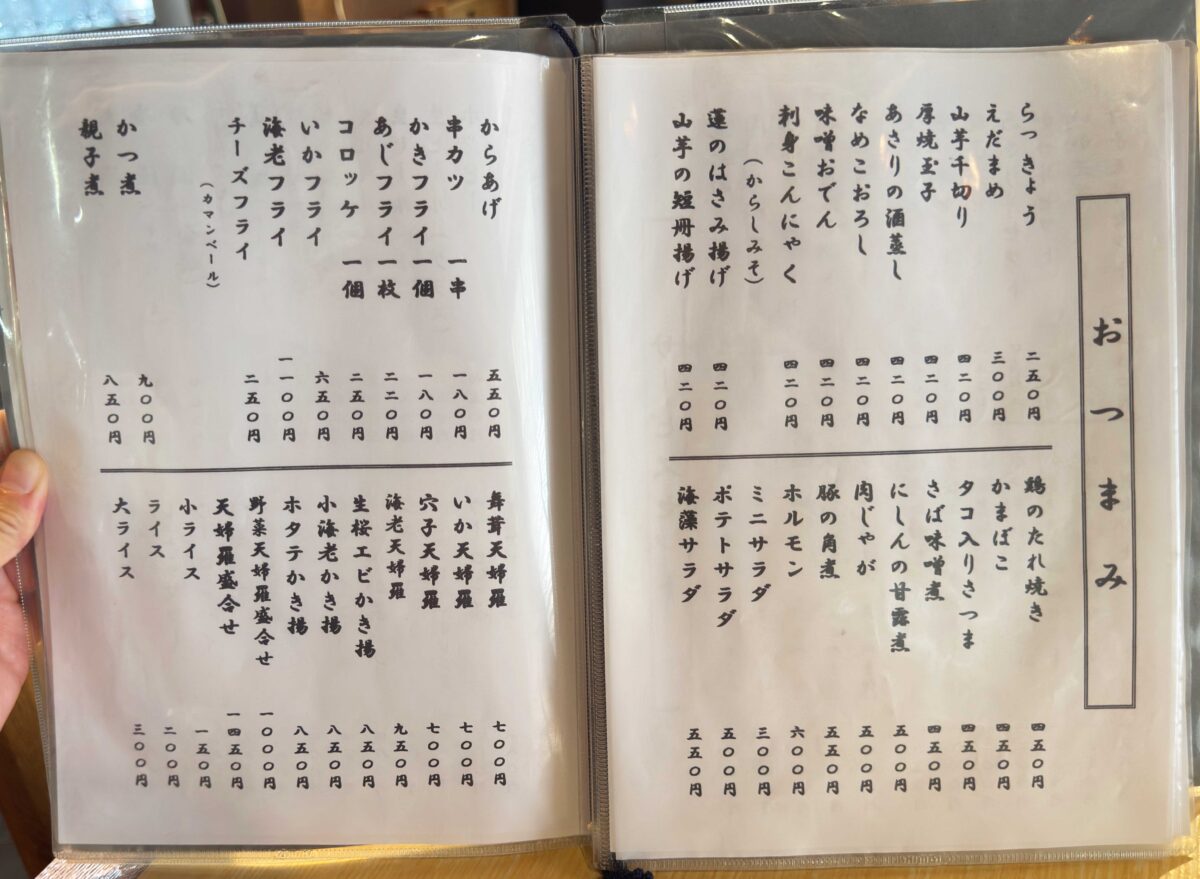 おつまみ
らっきょう 二五〇円
えだまめ 三〇〇円
山芋千切り 四二〇円
厚焼玉子 四二〇円
あさりの酒蒸し 四二〇円
なめこおろし 四二〇円
味噌おでん 四二〇円
刺身こんにゃく 四二〇円
(からしみそ)
蓮のはさみ揚げ 四二〇円
山芋の短冊揚げ 四二〇円
鶏のたれ焼き 四五〇円
かまぼこ 四五〇円
タコ入りさつま 四五〇円
さば味噌煮 四五〇円
にしんの甘露煮 五〇〇円
肉じゃが 五〇〇円
豚の角煮 五五〇円
ホルモン 六〇〇円
ミニサラダ 三〇〇円
ポテトサラダ 五〇〇円
海藻サラダ 五五〇円
からあげ 五五〇円
串カツ 一串 一八〇円
かきフライ 一個 一八〇円
あじフライ 一枚 二二〇円
コロッケ 一個 二五〇円
いかフライ 六五〇円
海老フライ 一一〇〇円
チーズフライ 二五〇円
(カマンベール)
かつ煮 九〇〇円
親子煮 八五〇円
舞茸天婦羅 七〇〇円
いか天婦羅 七〇〇円
穴子天婦羅 七〇〇円
海老天婦羅 九五〇円
生桜エビかき揚 八五〇円
小海老かき揚 八五〇円
ホタテかき揚 八五〇円
野菜天婦羅盛合せ 一〇〇〇円
天婦羅盛合せ 一四五〇円
小ライス 一五〇円
ライス 二〇〇円
大ライス 三〇〇円